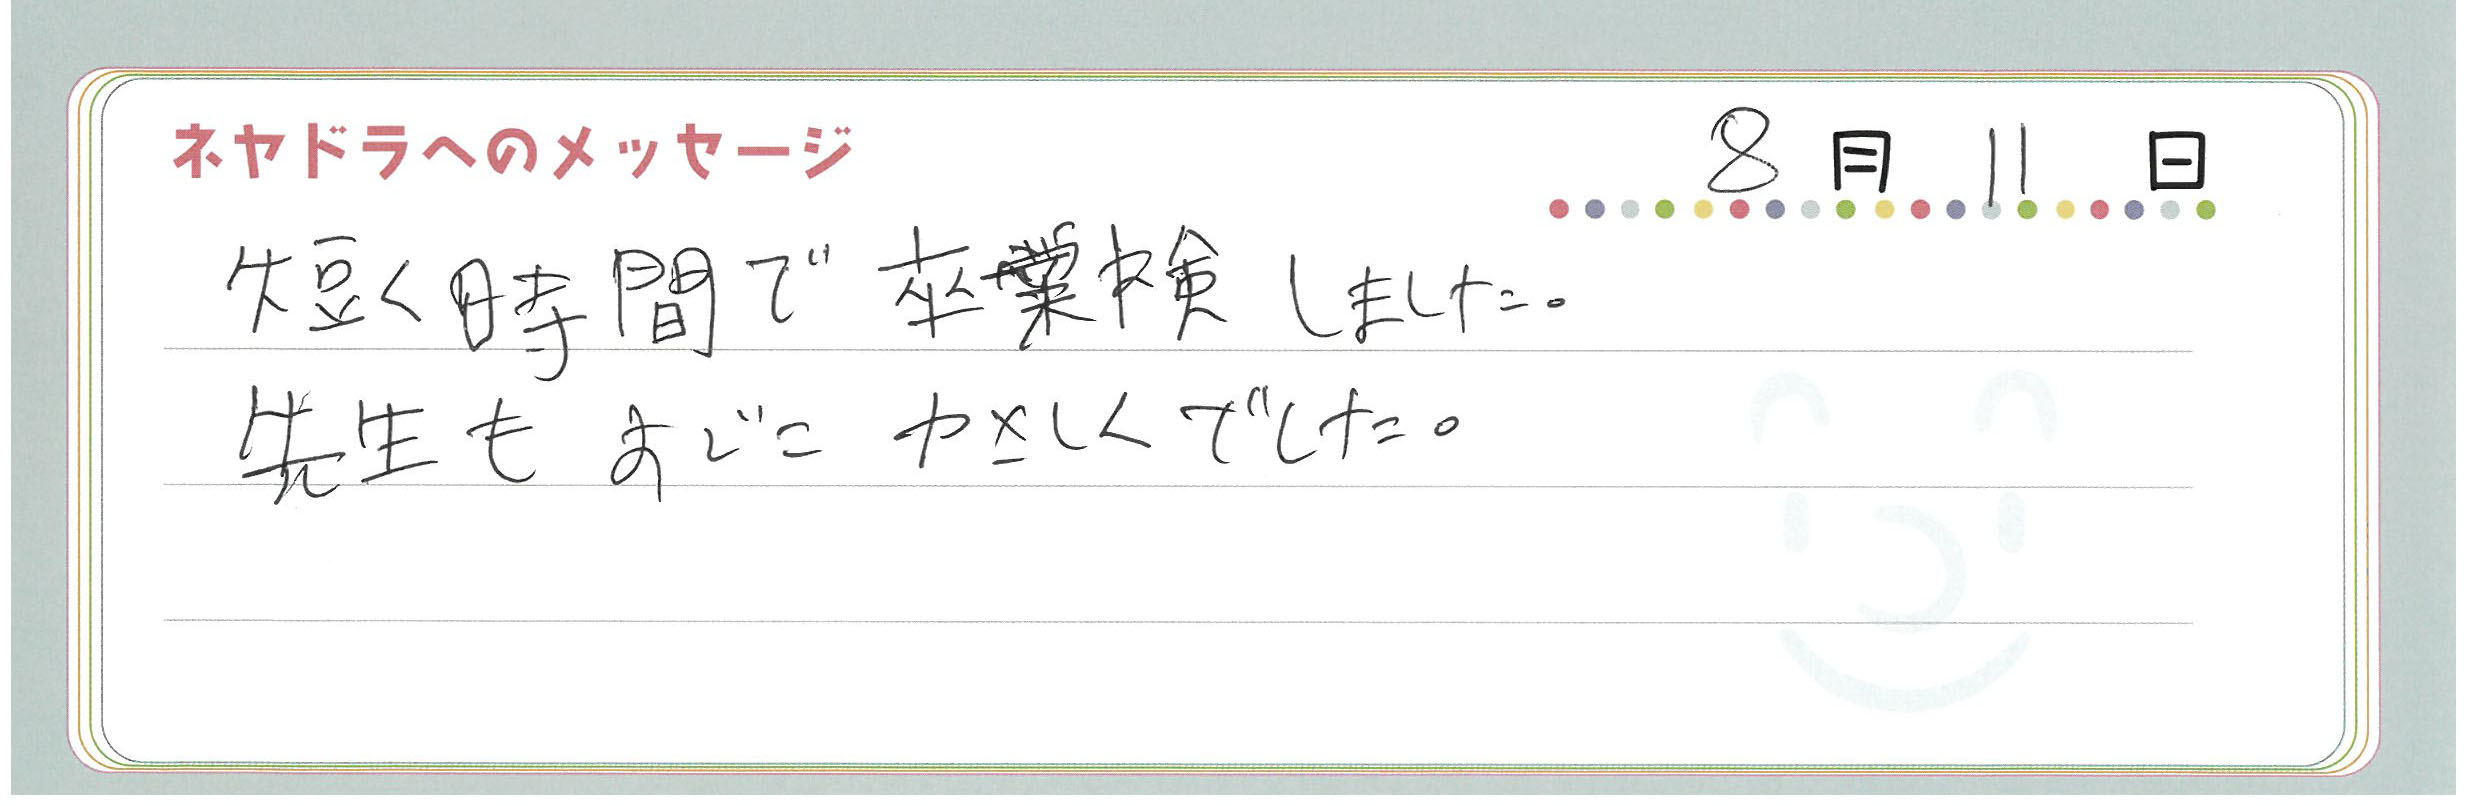 ネヤドラへのメッセージ
8月11日
短く時間で卒業検しました。
先生も やさしくでした。